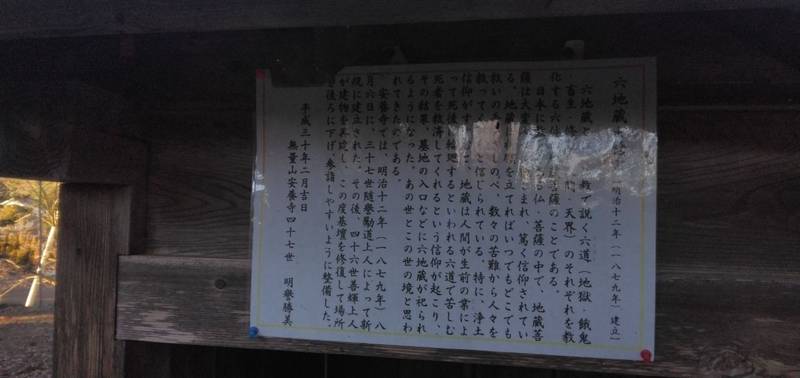 六地蔵 明治十二年(一八七九年)建立
六地蔵と 教で説く六道(地獄・餓鬼
・畜生・修 ・天界)のそれぞれを教
化する六体 菩薩のことである。
日本に る仏・菩薩の中で、地蔵菩
薩は大衆 まれ、篤く信仰されてい
る。地蔵 を立てればいつでもどこでも
救いの しのべ、数々の苦難から人々を
救って と信じられている。特に、浄土
信仰が て、地蔵は人間が生前の業によ
って死後 輪廻するといわれる六道で苦しむ
死者を救済してくれるという信仰が起こり、
その結果、墓地の入口などに六地蔵が祀られ
るようになった。あの世とこの世の境と思わ
れてきたのである。
安養寺では、明治十二年(一八七九年)八
月六日に、三十七世随誉勵道上人によって新
規に建立された。その後、四十六世善輝上人
が建物を再建し、この度基壇を修復して場所
を後ろに下げ、参詣しやすいように整備した。
平成三十年二月吉日
無量山安養寺四十七世 明誉勝美